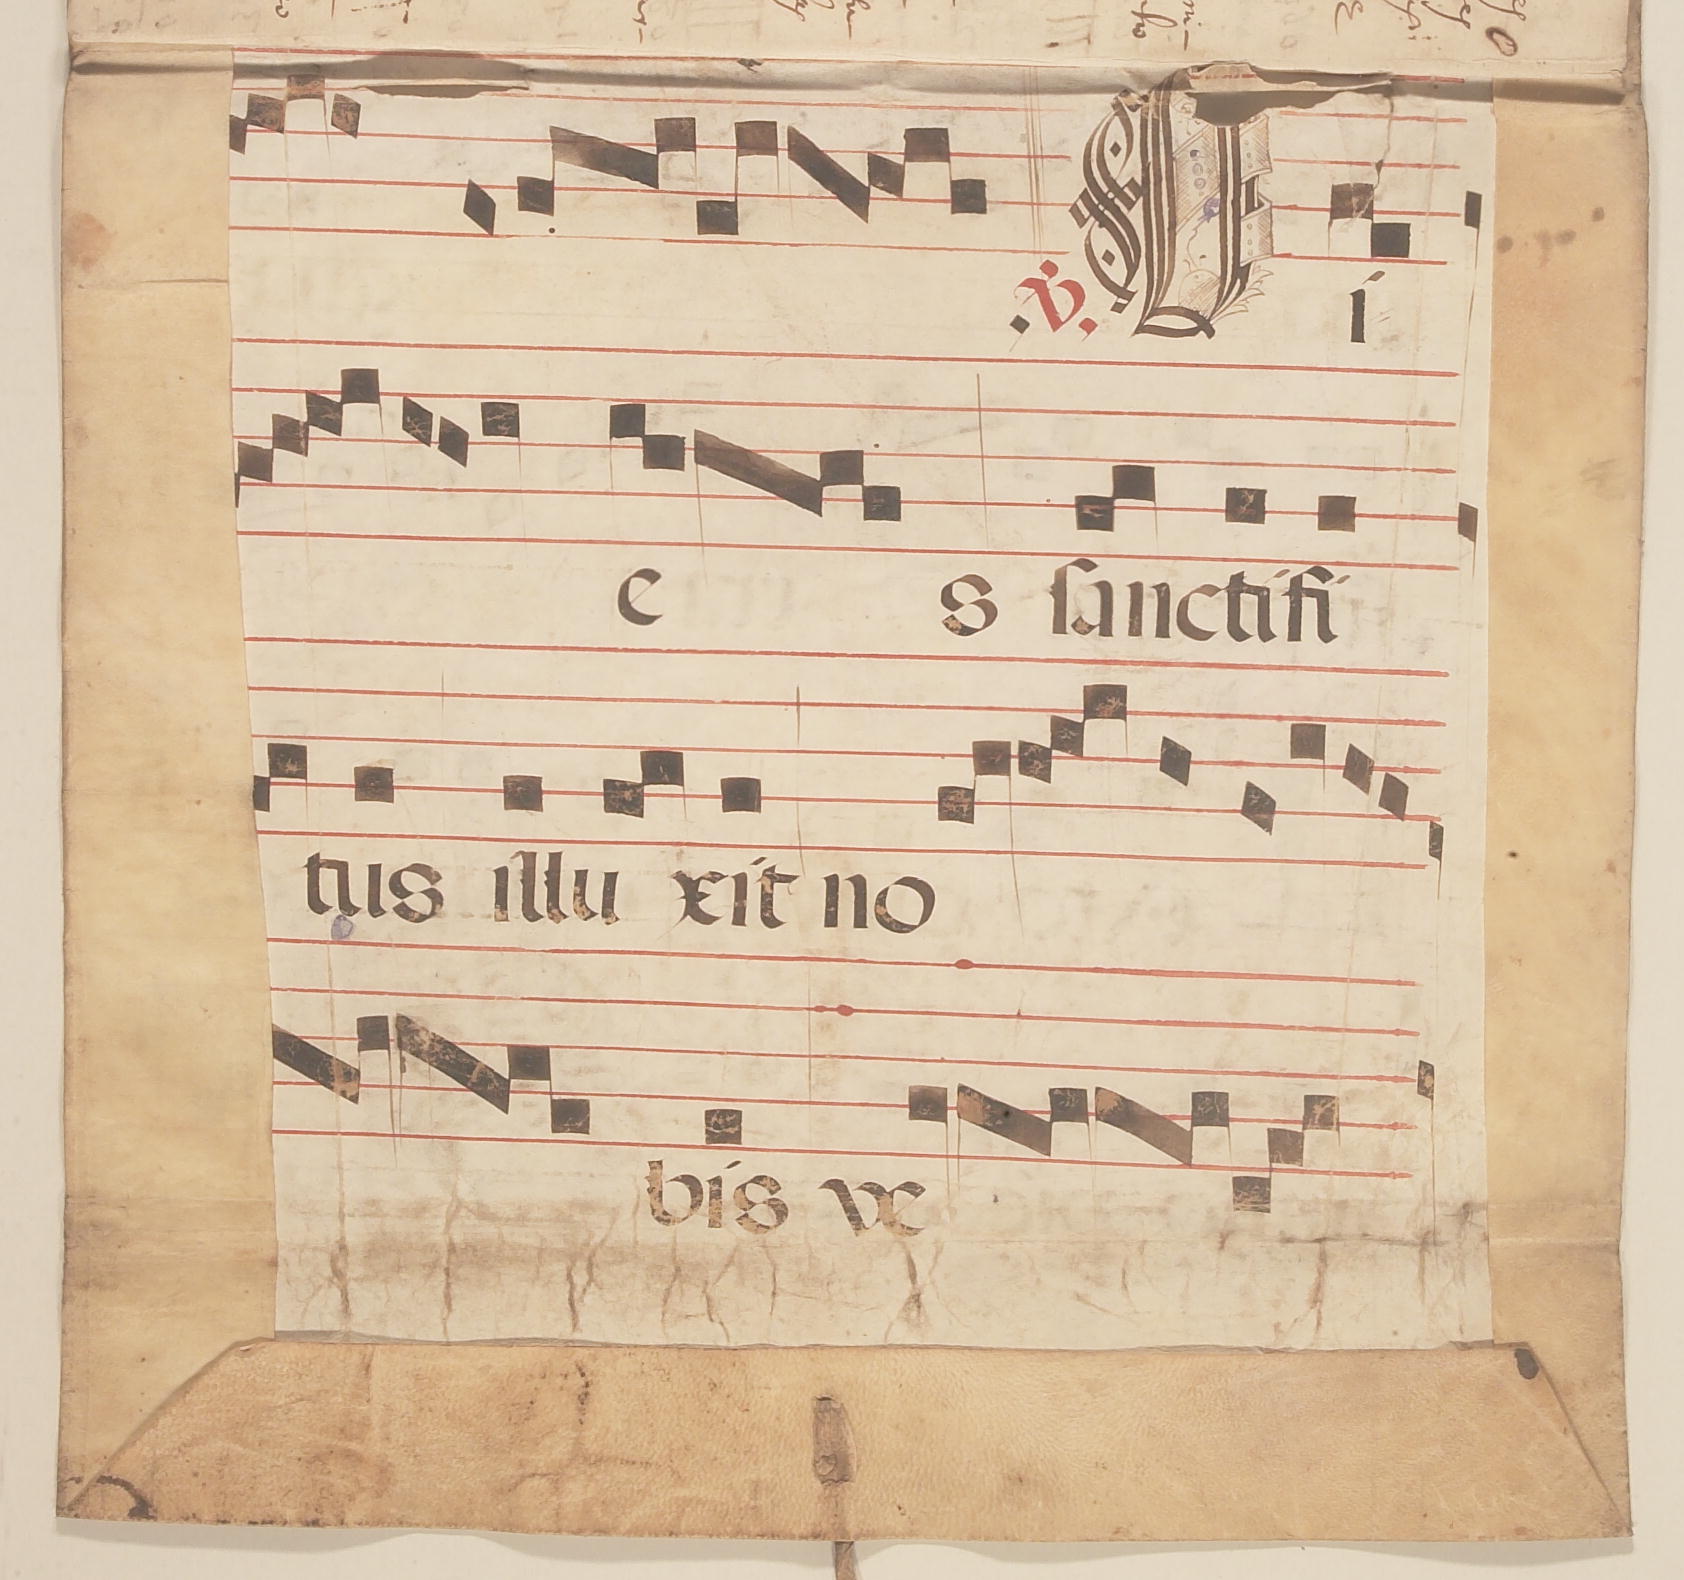 .℣. Di
e s sanctifi
tus illu xit no
bis ve